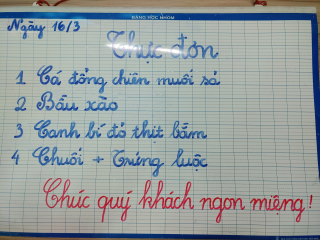 BẢNG HỌC NHÓM
Ngày 16/3
Thực đơn
1 Cá đồng chiên muối sả
2 Bầu xào
3 Canh bí đỏ thịt bằm
4 Chuối + Trứng luộc
Chúc quý khách ngon miệng!